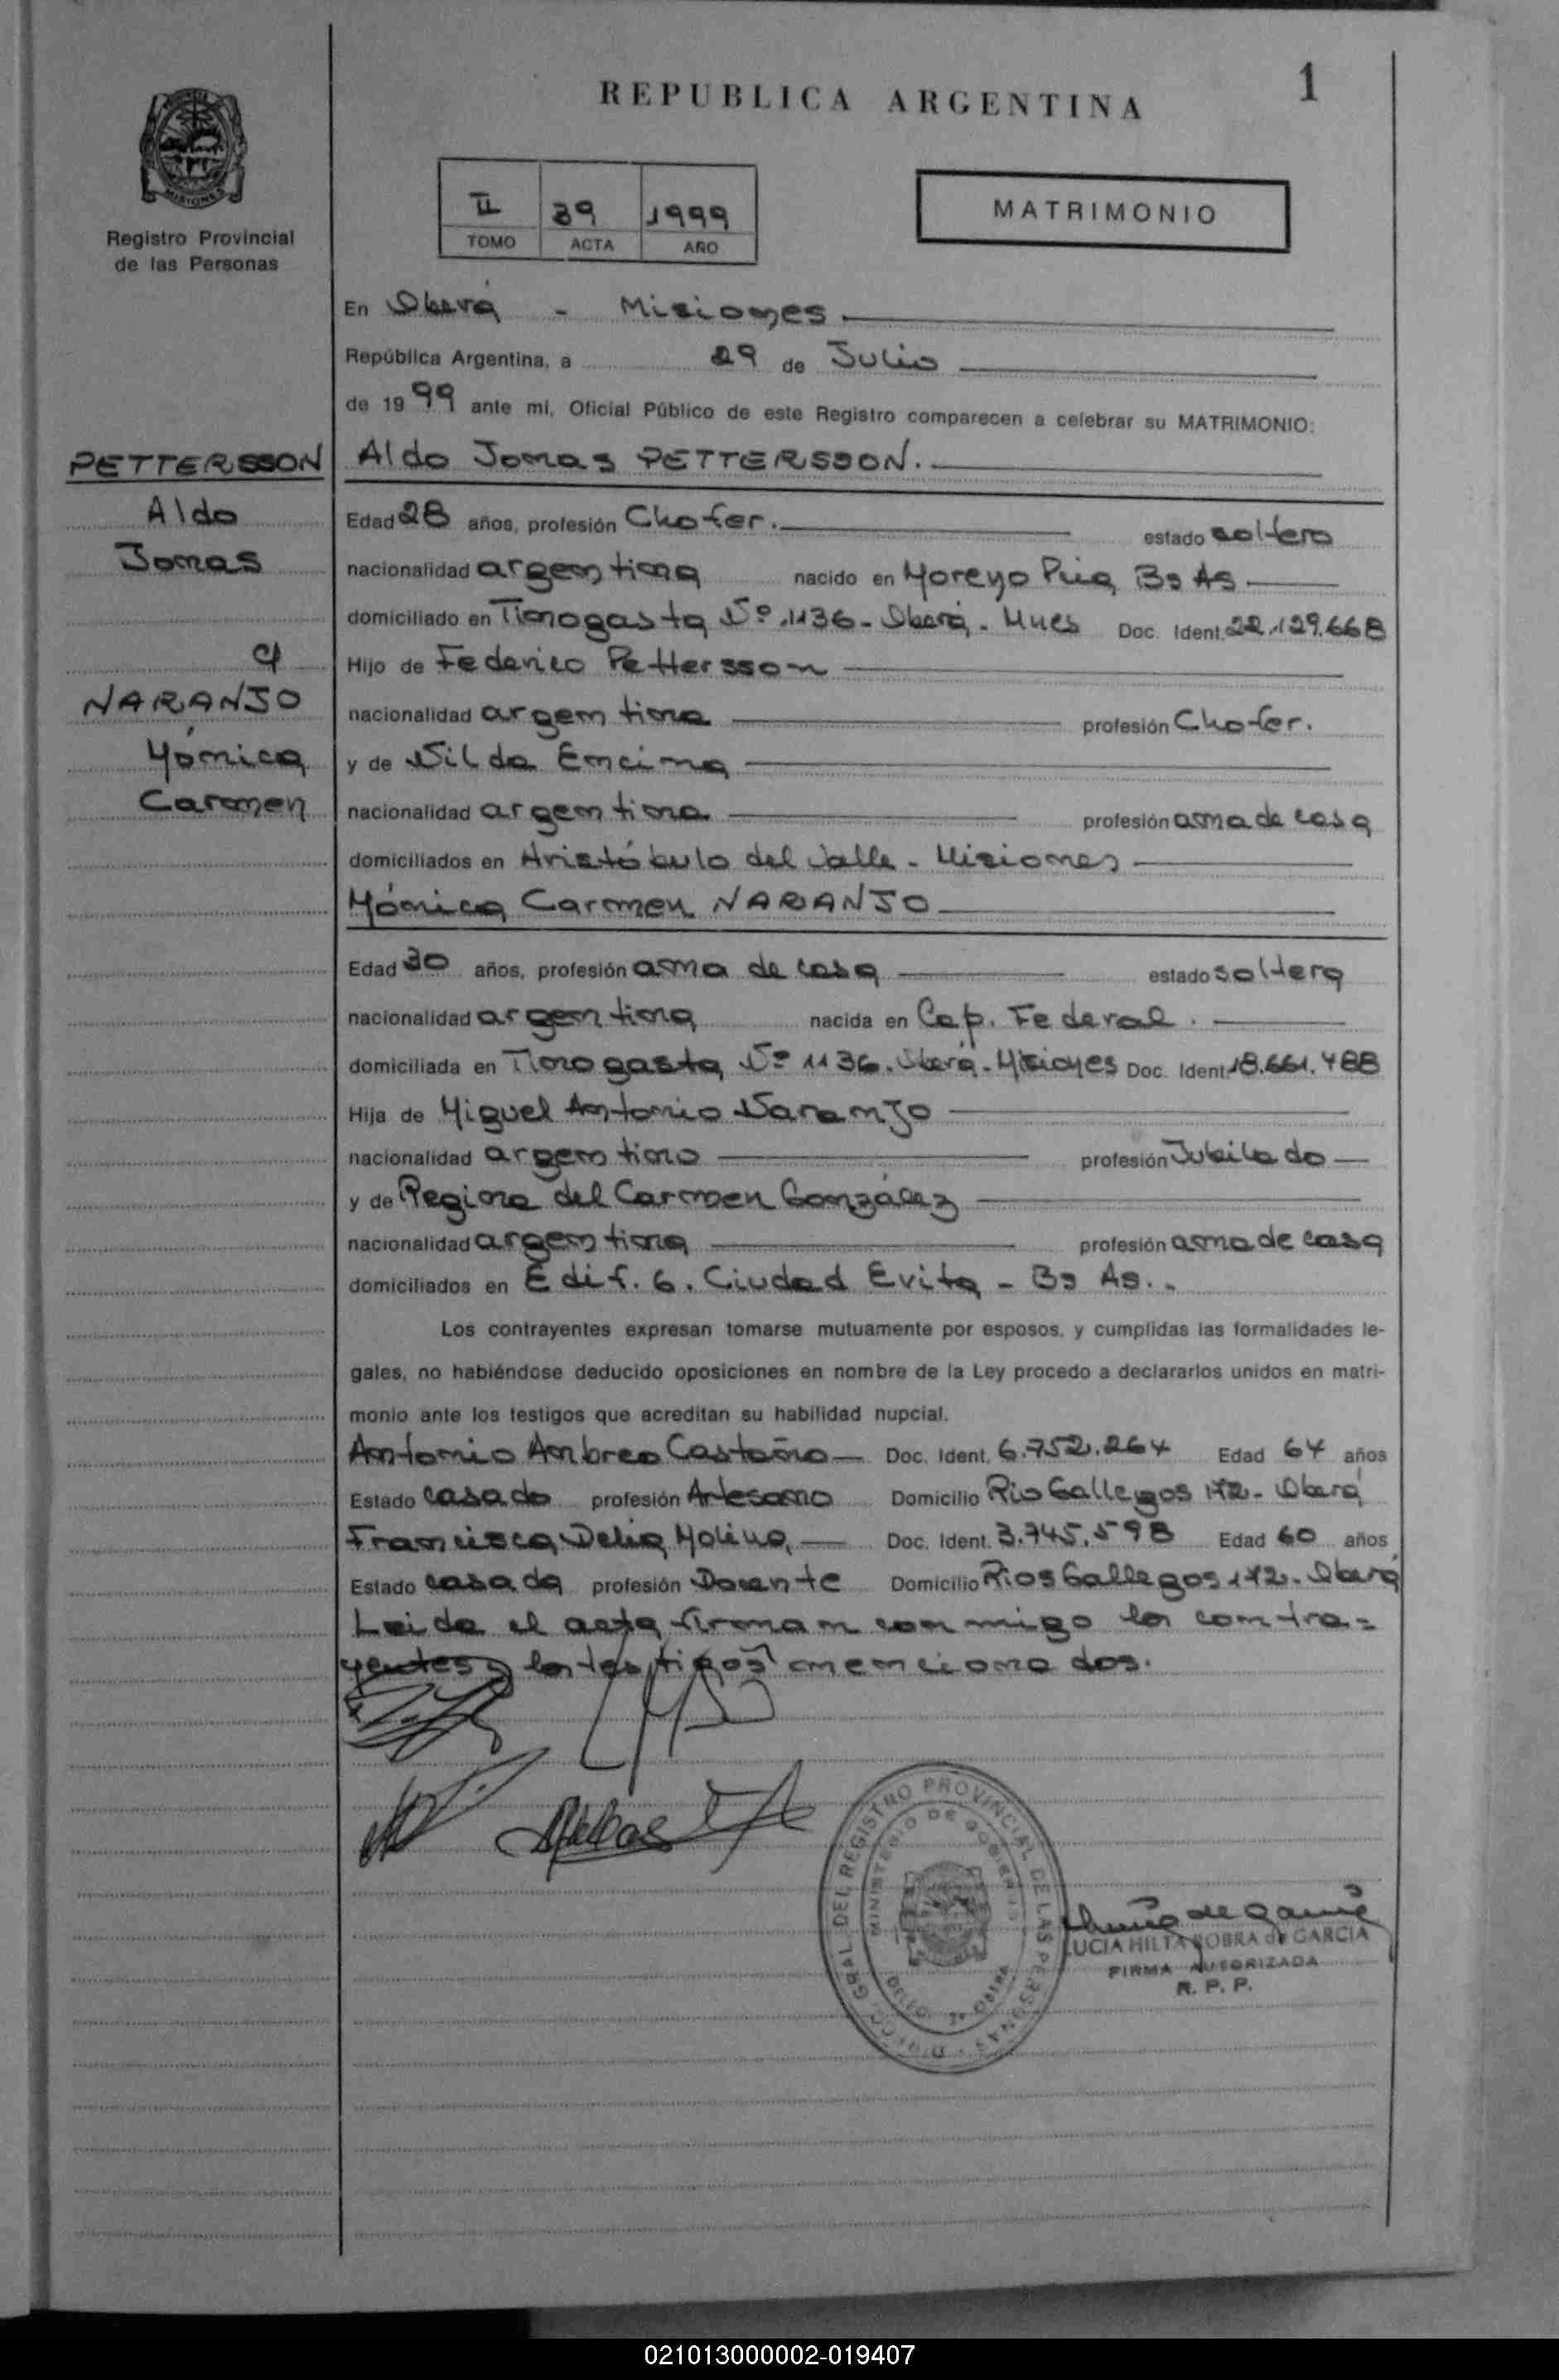 REPUBLICA ARGENTINA
1
MISIONES
Registro Provincial
de las Personas
II 39 1999
TOMO ACTA AÑO
MATRIMONIO
En Oberá - Misiones
República Argentina, a 29 de Julio
de 1999 ante mi, Oficial Público de este Registro comparecen a celebrar su MATRIMONIO:
PETTERSSON
Aldo
Jonas
c/
NARANJO
Mónica
Carmen
Aldo Jonas PETTERSSON.
Edad 28 años, profesión Chofer. estado soltero
nacionalidad argentina nacido en Moreno Pcia Bs As
domiciliado en Tinogasta Nº 1136 - Oberá - Mnes Doc. Ident. 22.129.668
Hijo de Federico Pettersson
nacionalidad argentina profesión Chofer.
y de Nilda Encina
nacionalidad argentina profesión ama de casa
domiciliados en Aristóbulo del Valle - Misiones
Mónica Carmen NARANJO
Edad 30 años, profesión ama de casa estado soltera
nacionalidad argentina nacida en Cap. Federal.
domiciliada en Tinogasta Nº 1136. Oberá - Misiones Doc. Ident. 18.661.488
Hija de Miguel Antonio Naranjo
nacionalidad argentino profesión Jubilado
y de Regina del Carmen González
nacionalidad argentina profesión ama de casa
domiciliados en Edif. 6. Ciudad Evita - Bs As. -
Los contrayentes expresan tomarse mutuamente por esposos, y cumplidas las formalidades le-
gales, no habiéndose deducido oposiciones en nombre de la Ley procedo a declararlos unidos en matri-
monio ante los testigos que acreditan su habilidad nupcial.
Antonio Ambreo Castaño Doc. Ident. 6.752.264 Edad 64 años
Estado casado profesión Artesano Domicilio Rio Gallegos 172 - Oberá
Francisca Delia Molina Doc. Ident. 3.745.598 Edad 60 años
Estado casada profesión Docente Domicilio Rios Gallegos 172 - Oberá
Leida el acta firman conmigo los contra=
yentes y los testigos mencionados.
DIRECC. GRAL. DEL REGISTRO PROVINCIAL DE LAS PERSONAS
MINISTERIO DE GOBIERNO
DELEG. 2ª OBERA
LUCIA HILTA BOBRA de GARCIA
FIRMA AUTORIZADA
R. P. P.
021013000002-019407